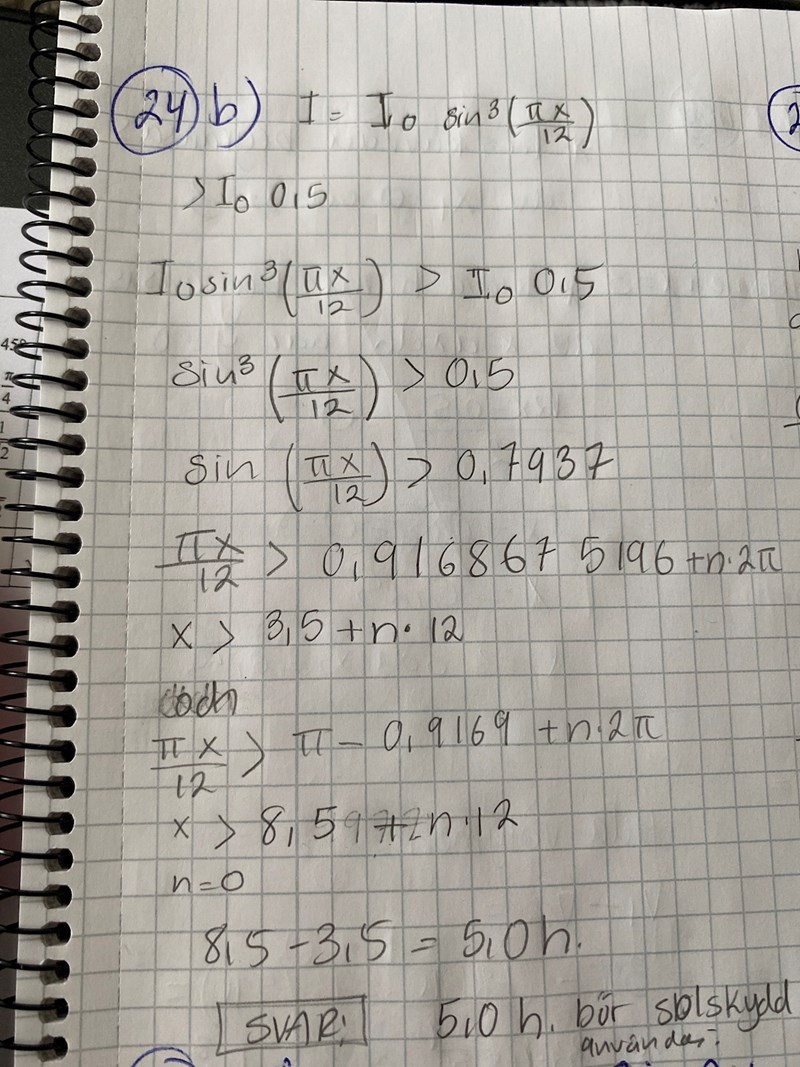 24 b) I = I₀ sin³(πx/12)
> I₀ 0,5
I₀ sin³(πx/12) > I₀ 0,5
sin³(πx/12) > 0,5
sin(πx/12) > 0,7937
πx/12 > 0,9168675196 + n·2π
x > 3,5 + n·12
och
πx/12 > π - 0,9169 + n·2π
x > 8,5 n·12
n=0
8,5 - 3,5 = 5,0 h.
SVAR: 5,0 h. bör solskydd
användas.
45
π/4
1
2